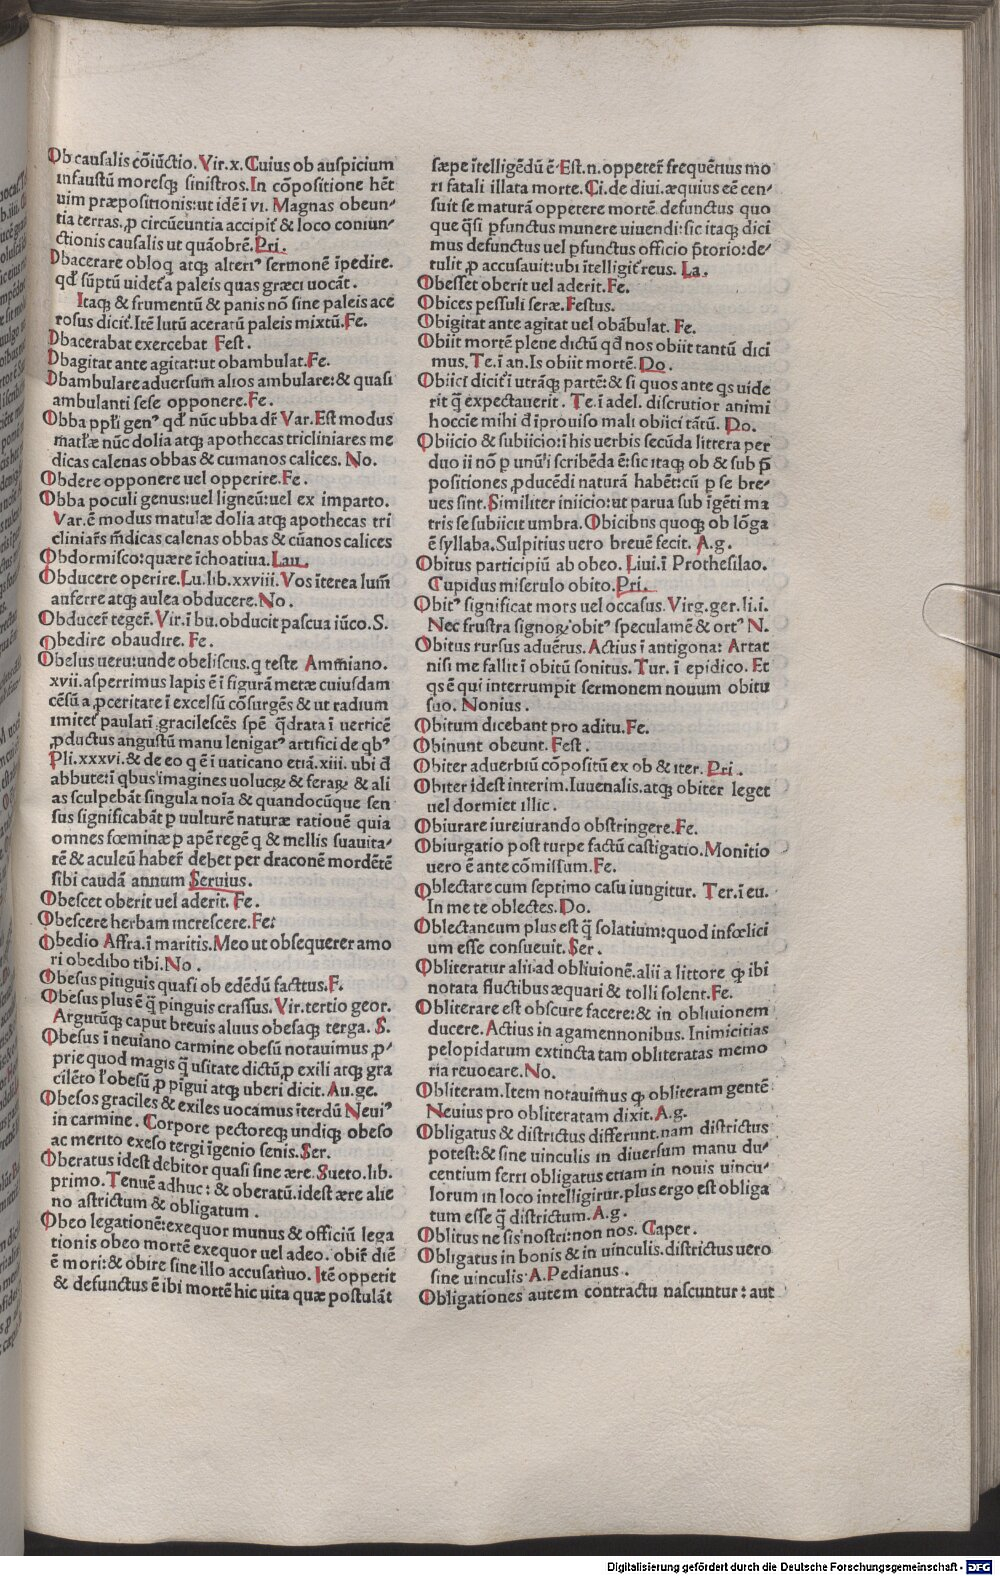 Ob causalis cōiūctio. Vir. x. Cuius ob auspicium
infaustū moresqꝫ sinistros. In cōpositione hēt
uim præpositionis: ut idē ī vi. Magnas obeun-
tia terras. ꝓ circūeuntia accipit̃ & loco coniun-
ctionis causalis ut quāobrē. Pri.
Obacerare obloq̃ atqꝫ alteriꝰ sermonē īpedire.
qđ sūptū uidet̃ a paleis quas græci uocāt.
Itaqꝫ & frumentū & panis nō sine paleis ace
rosus dicit̃. Itē lutū aceratū paleis mixtū. Fe.
Obacerabat exercebat Fest.
Obagitat ante agitat: ut obambulat. Fe.
Obambulare aduersum alios ambulare: & quasi
ambulanti sese opponere. Fe.
Obba ppl̃i genꝰ qđ nūc ubba dr̃ Var. Est modus
matl̃æ nūc dolia atqꝫ apothecas tricliniares me
dicas calenas obbas & cumanos calices. No.
Obdere opponere uel opperire. Fe.
Obba poculi genus: uel ligneū: uel ex imparto.
Var. ē modus matulæ dolia atqꝫ apothecas tri
cliniar̃s m̄dicas calenas obbas & cūanos calices
Obdormisco: quære īchoatiua. Lau.
Obducere operire. Lu. lib. xxviii. Vos īterea lum̄
auferre atqꝫ aulea obducere. No.
Obducer̃ teger̃. Vir. ī bu. obducit pascua iūco. S.
Obedire obaudire. Fe.
Obelus ueru: unde obeliscus. q teste Ammiano.
xvii. asperrimus lapis ē ī figurā metæ cuiusdam
cēsū a ꝓceritate ī excelsū cōsurgēs & ut radium
imitet̃ paulatī gracilescēs spē q̄drata ī uerticē
ꝓductus angustū manu lenigatꝰ artifici de qbꝰ
Pli. xxxvi. & de eo q ē ī uaticano etiā. xiii. ubi đ
abbute: ī qbus imagines uolucꝝ & feraꝝ & ali
as sculpebāt singula noīa & quandocūque sen
sus significabāt ꝑ uulturē naturæ rationē quia
omnes fœminæ ꝑ apē regē q & mellis suauita-
rē & aculeū haber̃ debet per draconē mordētē
sibi caudā annum Seruius.
Obescet oberit uel aderit. Fe.
Obescere herbam increscere. Fe:
Obedio Affra. ī maritis. Meo ut obsequerer amo
ri obedibo tibi. No.
Obesus pinguis quasi ob edēdū factus. F.
Obesus plus ē q̄ pinguis crassus. Vir. tertio geor.
Argutūqꝫ caput breuis aluus obesaqꝫ terga. S.
Obesus ī neuiano carmine obesū notauimus ꝓ-
prie quod magis q̄ usitate dictū ꝓ exili atqꝫ gra
cilēto l̃ obesū ꝓ pīgui atqꝫ uberi dicit. Au. ge.
Obesos graciles & exiles uocamus īterdū Neuiꝰ
in carmine. Corpore pectoreqꝫ undiqꝫ obeso
ac merito exeso tergi īgenio senis. Ser.
Oberatus idest debitor quasi sine ære. Sueto. lib.
primo. Tenuē adhuc: & oberatū. idest ære alie
no astrictum & obligatum.
Obeo legationē: exequor munus & officiū lega
tionis obeo mortē exequor uel adeo. obir̃ diē
ē mori: & obire sine illo accusatiuo. Itē oppetit
& defunctus ē ibi mortē hic uita quæ postulāt
sæpe ītelligēdū ē. Est. n. oppeter̃ frequētius mo
ri fatali illata morte. Ci. de diui. æquius eē cen-
suit se maturā oppetere mortē. defunctus quo
que q̄si ꝑfunctus munere uiuendi: sic itaqꝫ dici
mus defunctus uel ꝑfunctus officio p̄torio: de-
tulit ꝓ accusauit: ubi ītelligit̃ reus. La.
Obesset oberit uel aderit. Fe.
Obices pessuli seræ. Festus.
Obigitat ante agitat uel obābulat. Fe.
Obiit mortē plene dictū qđ nos obiit tantū dici
mus. Te. ī an. Is obiit mortē. Do.
Obiici dicit̃ ī utrāqꝫ partē: & si quos ante qs uide
rit q̄ expectauerit. Te. ī adel. discrutior animi
hoccie mihi đ īprouiso mali obiici tātū. Do.
Obiicio & subiicio: ī his uerbis secūda littera per
duo ii nō ꝑ unū i scribēda ē: sic itaqꝫ ob & sub p̄
positiones ꝓducēdi naturā habēt: cū ꝑ se bre-
ues sint. Similiter iniicio: ut parua sub īgēti ma
tris se subiicit umbra. Obicibus quoqꝫ ob lōga
ē syllaba. Sulpitius uero breuē fecit. A. g.
Obitus participiū ab obeo. Liui. ī Prothesilao.
Cupidus miserulo obito. Pri.
Obitꝰ significat mors uel occasus. Virg. ger. li. i.
Nec frustra signoꝝ obitꝰ speculamē & ortꝰ N.
Obitus rursus aduētus. Actius ī antigona: Artat
nisi me fallit ī obitū sonitus. Tur. ī epidico. Et
qs ē qui interrumpit sermonem nouum obitu
suo. Nonius.
Obitum dicebant pro aditu. Fe.
Obinunt obeunt. Fest.
Obiter aduerbiū cōpositū ex ob & iter. Pri.
Obiter idest interim. Iuuenalis. atqꝫ obiter leget
uel dormiet illic.
Obiurare iureiurando obstringere. Fe.
Obiurgatio post turpe factū castigatio. Monitio
uero ē ante cōmissum. Fe.
Oblectare cum septimo casu iungitur. Ter. ī eu.
In me te oblectes. Do.
Oblectaneum plus est q̄ solatium: quod infœlici
um esse consueuit. Ser.
Obliteratur alii ad obliuionē. alii a littore ꝙ ibi
notata fluctibus æquari & tolli solent. Fe.
Obliterare est obscure facere: & in obliuionem
ducere. Actius in agamennonibus. Inimicitias
pelopidarum extincta tam obliteratas memo
ria reuocare. No.
Obliteram. Item notauimus ꝙ obliteram gentē
Neuius pro obliteratam dixit. A. g.
Obligatus & districtus differunt. nam districtus
potest: & sine uinculis in diuersum manu du-
centium ferri obligatus etiam in nouis uincu-
lorum in loco intelligitur. plus ergo est obliga
tum esse q̄ districtum. A. g.
Oblitus ne sis nostri: non nos. Caper.
Obligatus in bonis & in uinculis. districtus uero
sine uinculis. A. Pedianus.
Obligationes autem contractu nascuntur: aut
Digitalisierung gefördert durch die Deutsche Forschungsgemeinschaft - DFG